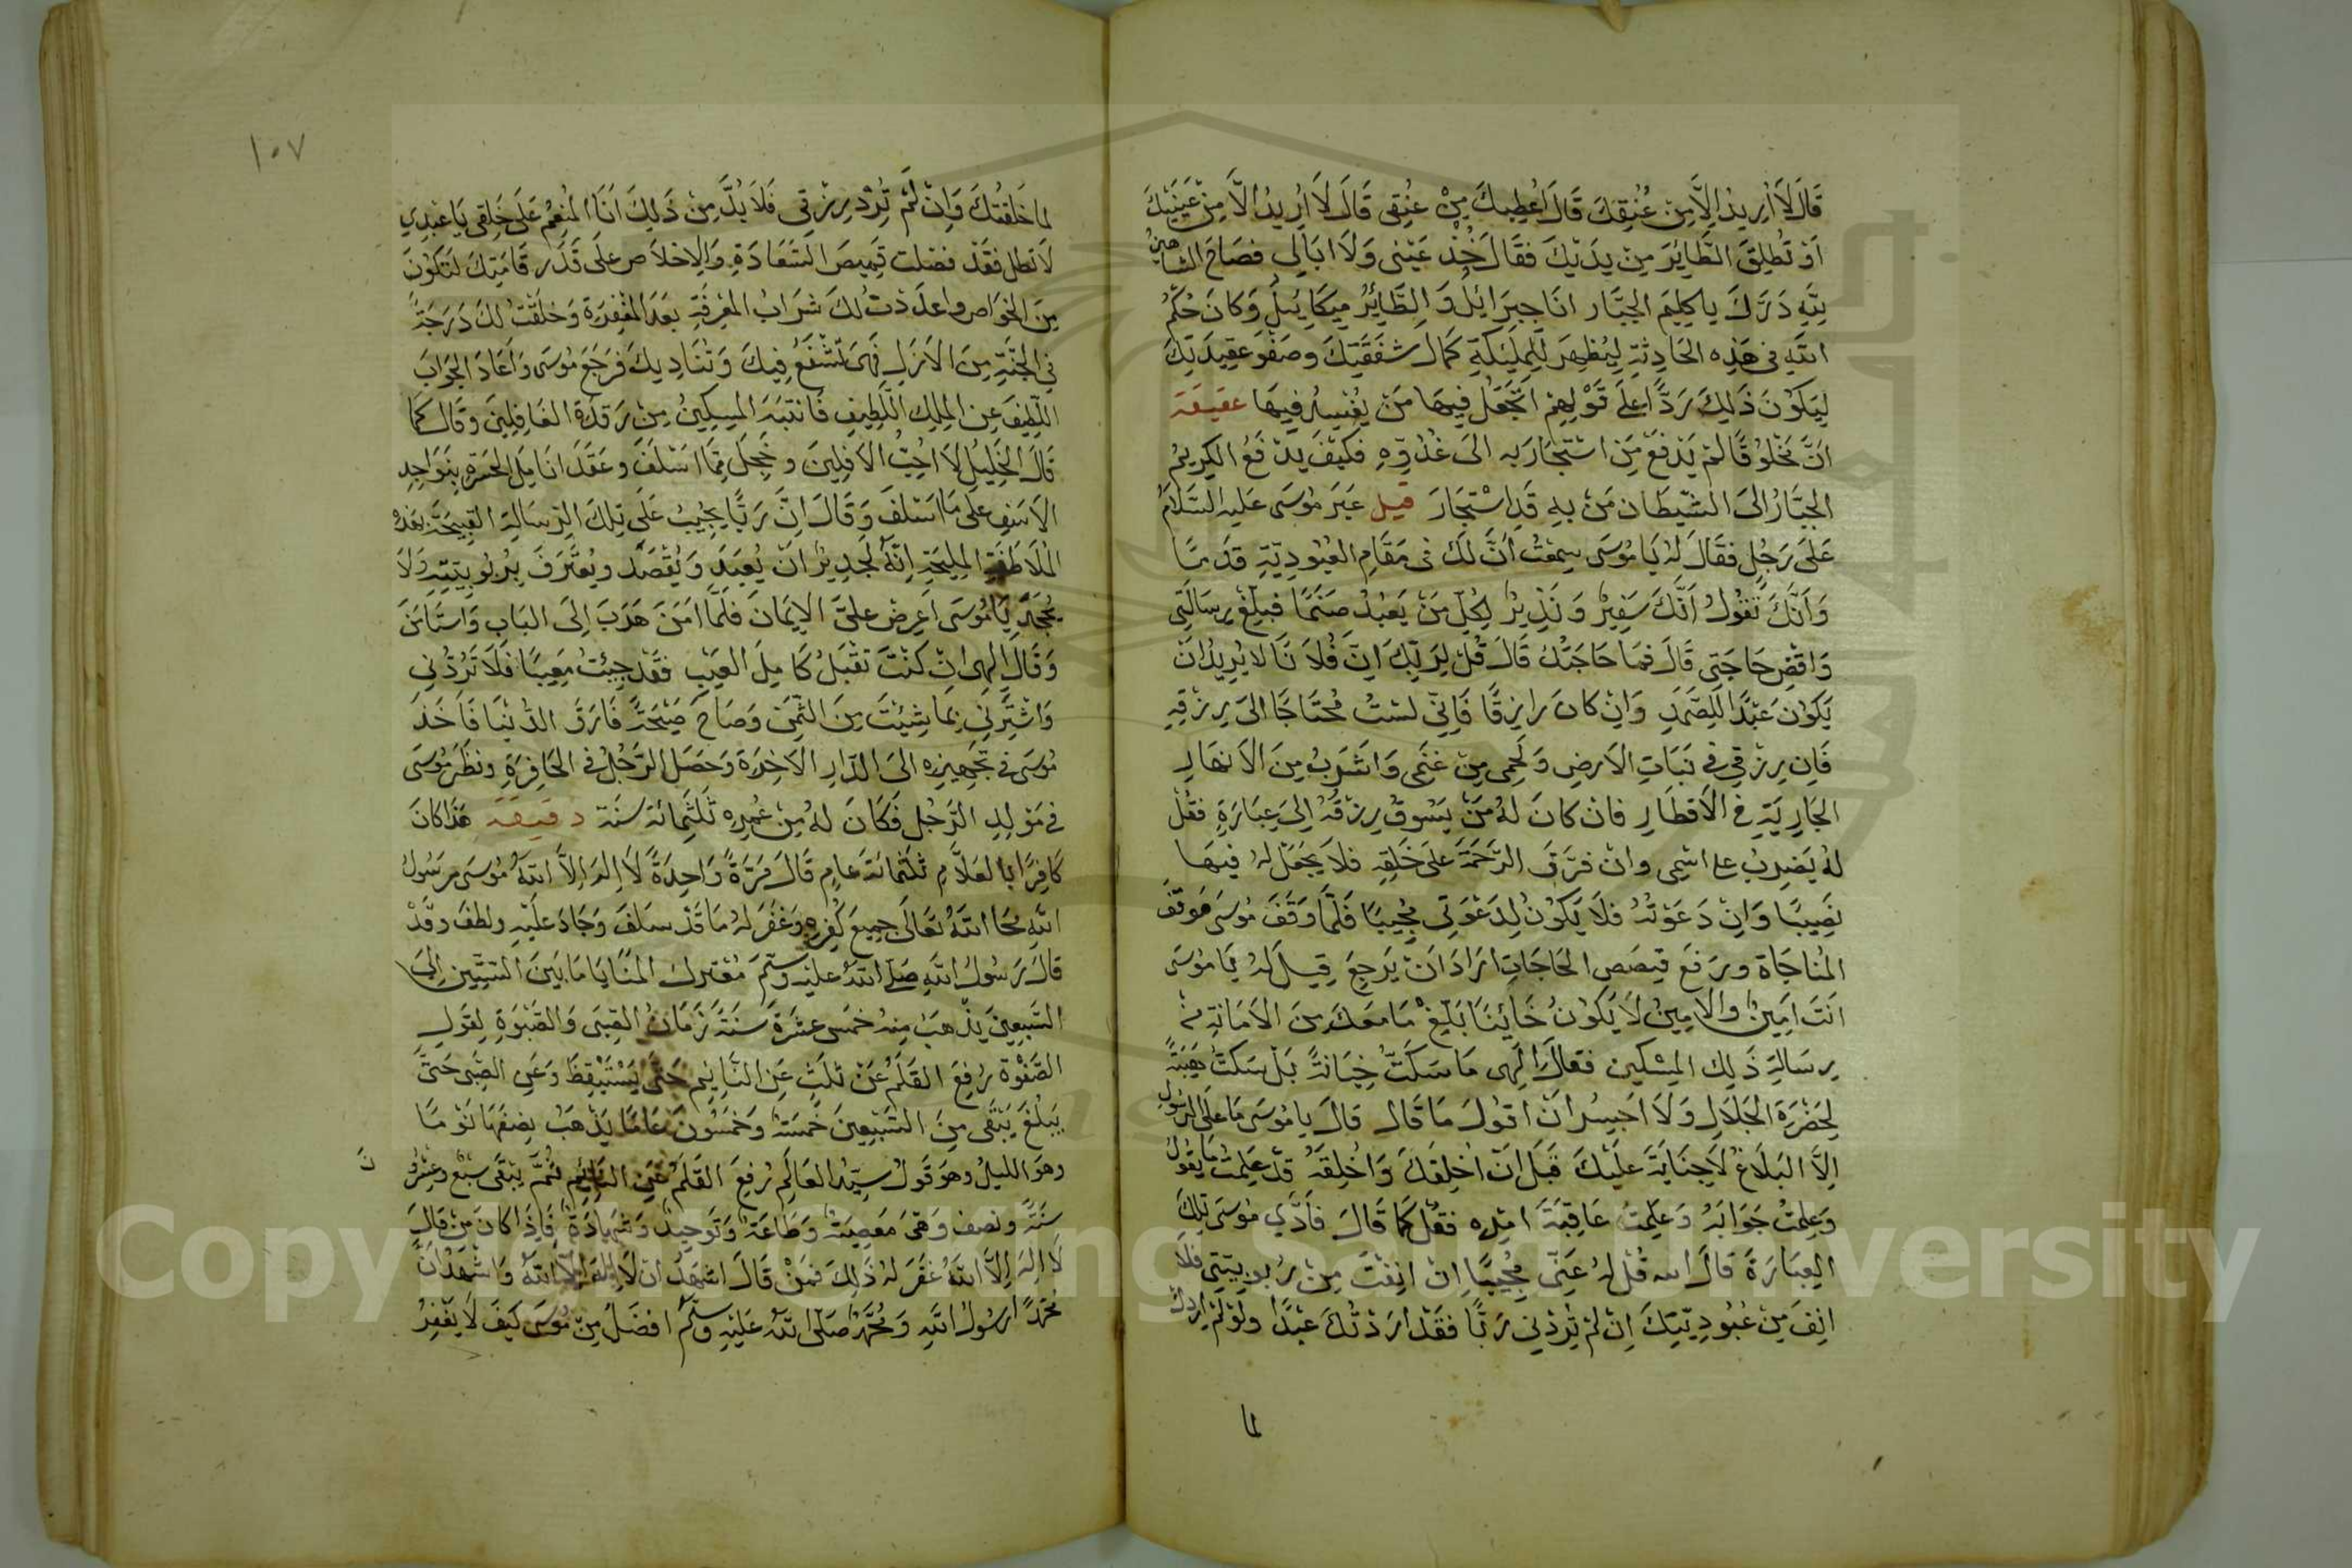 قَالَ لَا أُرِيدُ إِلَّا مِنْ عُنُقِكَ قَالَ أُعْطِيكَ مِنْ عُنُقِى قَالَ لَا أُرِيدُ إِلَّا مِنْ عَيْنَيْكَ
أَوْ تُطْلِقَ الطَّائِرَ مِنْ يَدَيْكَ فَقَالَ خُذْ عَيْنِى وَلَا أُبَالِى فَصَاحَ الشاهينُ
لِلَّهِ دَرُّكَ يا كَلِيمَ الجَبَّار انَا جِبرَائِلُ وَالطَّائِرُ مِيكَايِيلُ وَكَانَ حُكْمُ
اللَّهِ فى هَذِهِ الحَادِثَةِ لِيُظْهِرَ لِلْمَلَئِكَةِ كَمَالَ شَفَقَتِكَ وصَفْوَ عَقِيدَتِكَ
لِيَكُوْنَ ذَلِكَ رَدًّا عَلَى قَوْلِهِمْ اَتَجْعَلُ فِيهَا مَنْ يُفْسِدُ فِيهَا
اَنَّ مَخْلُوقًا لَمْ يَدْفَعْ مَنِ اسْتَجَارَ بِهِ الَى عَدُوِّهِ فَكَيْفَ يَدْفَعُ الكَرِيمُ
الجَبَّارُ الَى الشَّيْطَانِ مَنْ بِهِ قَدِ اسْتَجَارَ قيل عَبَرَ مُوسَى عَلَيْهِ السَّلَامُ
عَلَى رَجُلٍ فَقَالَ لَهُ يَا مُوسَى سَمِعْتُ اَنَّ لَكَ فى مَقَامِ العُبُودِيَّةِ قَدَمًا
وَاَنَّكَ تَقُولُ اَنَّكَ سَفِيرٌ وَنَذِيرٌ لِكُلِّ مَنْ يَعْبُدُ صَنَمًا فَبَلِّغْ رِسَالَتِى
وَاقْضِ حَاجَتِى قَالَ فَمَا حَاجَتُكَ قَالَ قُلْ لِرَبِّكَ اِنَّ فُلَانًا لَا يُرِيدُ اَنْ
يَكُونَ عَبْدًا لِلصَّمَدِ وَاِنْ كَانَ رَازِقًا فَاِنِّى لَسْتُ مُحْتَاجًا الَى رِزْقِهِ
فَاِنَّ رِزْقِى فِى نَبَاتِ الاَرْضِ وَلَحْمِى مِنْ غَنَمِى وَاَشْرَبُ مِنَ الاَنْهَارِ
الجَارِيَةِ فِى الاَقْطَارِ فَاِنْ كَانَ لَهُ مَنْ يَسُوقُ رِزْقَهُ اِلَى عِبَارَةٍ فَقُلْ
لَهُ يَضْرِبُ على اسْمِى وَاِنْ فَرَّقَ الرَّحْمَةَ عَلَى خَلْقِهِ فَلَا يَجْعَلْ لِى فِيهَا
نَصِيبًا وَاِنْ دَعَوْتُهُ فَلَا يَكُونُ لِدَعْوَتِى مُجِيبًا فَلَمَّا وَقَفَ مُوسَى مَوْقِفَ
المُنَاجَاةِ وَرَفَعَ قِصَصَ الحَاجَاتِ اَرَادَ اَنْ يَرْجِعَ قِيلَ لَهُ يَا مُوسَى
اَنْتَ اَمِينٌ وَالاَمِينُ لَا يَكُونُ خَائِنًا بَلِّغْ مَا مَعَكَ مِنَ الاَمَانَةِ مِنْ
رِسَالَةِ ذَلِكَ المِسْكِينِ فَقَالَ اِلَهِى مَا سَكَتُّ خِيَانَةً بَلْ سَكَتُّ هَيْبَةً
لِحَضْرَةِ الجَلَالِ وَلَا اَجْسُرُ اَنْ اَقُولَ مَا قَالَ قَالَ يا مُوسَى مَا عَلَى الرَّسُولِ
اِلَّا البَلَاغُ لَا جِنَايَةَ عَلَيْكَ قَبْلَ اَنْ اَخْلُقَكَ وَاَخْلُقَهُ قَدْ عَلِمْتُ مَا يَقُولُ
وَعَلِمْتُ جَوَابَهُ وَعَلِمْتُ عَاقِبَةَ اَمْرِهِ فَقُلْ كَمَا قَالَ فَاَدَّى مُوسَى تِلْكَ
العِبَارَةَ قَالَ الله قُلْ لَهُ عَنِّى مُجِيبًا اِنْ اَنِفْتَ مِنْ رُبُوبِيَّتِى فَلَا
اَنِفَ مِنْ عُبُودِيَّتِكَ اِنْ لَمْ تُرِدْنِى رَبًّا فَقَدْ اَرَدْتُكَ عَبْدًا وَلَوْ لَمْ اُرِدْكَ
لما
١٠٧
لما خَلَقْتُكَ وَاِنْ لَمْ تُرِدْ رِزْقِى فَلَا بُدَّ مِنْ ذَلِكَ اَنَا المُنْعِمُ عَلَى خَلْقِى يَا عَبْدِى
لَا تطل فَقَدْ فصلت قَمِيصَ السَّعَادَةِ وَالاِخْلَاصِ عَلَى قَدْرِ قَامَتِكَ لِتَكُونَ
مِنَ الخَوَاصِ وَاعدَدْتُ لَكَ شَرَابُ المَعْرِفَةِ بَعْدَ المَغْفِرَةِ وَخَلَقْتُ لَكَ دَرَجَةً
فى الجَنَّةِ مِنَ الاَزَلِ فَهِىَ تَشْفَعُ فِيكَ وَتُنَادِيكَ فَرَجَعَ مُوسَى وَاَعَادَ الجَوَابَ
اللَّطِيفَ عَنِ المَلِكِ اللَّطِيفِ فَانْتَبَهَ المِسْكِينُ مِنْ رَقْدَةِ الغَافِلِينَ وَقَالَ كَمَا
قَالَ الخَلِيلُ لَا اُحِبُّ الاَفِلِينَ وَخَجِلَ مِمَّا اسْلَفَ وَعَقَدَ انَامِلَ الحَسْرَةِ بِنَوَاجِدِ
الاَسَفِ عَلَى مَا اَسْلَفَ وَقَالَ اِنَّ رَبًّا يُجِيبُ عَلَى تِلْكَ الرِّسَالَةِ القَبِيحَةِ بِهَذِهِ
المُلَاطَفَةِ المَلِيحَةِ اِنَّهُ لَجَدِيرٌ اَنْ يُعْبَدَ وَيُقْصَدَ وَيُعْتَرَفَ بِرُبُوبِيَّتِهِ وَلَا
يُجْحَدَ يَا مُوسَى اَعْرِضْ عَلَىَّ الاِيمَانَ فَلَمَّا اَمَنَ هَرَبَ اِلَى البَابِ وَاسْتَامَنَ
وَقَالَ اِلَهِى اِنْ كُنْتَ تَقْبَلُ كَامِلَ العَيْبِ فَقَدْ جِئْتُ مَعِيبًا فَلَا تَرُدَّنِى
وَاشْتَرِنِى بِمَا شِئْتَ مِنَ الثَّمَنِ وَصَاحَ صَيْحَةً فَارَقَ الدُّنْيَا فَاَخَذَ
مُوسَى فى تَجْهِيزِهِ الَى الدَّارِ الاَخِرَةِ وَحَصَلَ الرَّجُلُ فى الحَافِرَةِ وَنَظَرَ مُوسَى
فى مَوْلِدِ الرَّجُلِ فَكَانَ لَهُ مِنْ عُمُرِهِ ثَلَثُمِائَةِ سَنَة دقيقة هَذَا كَانَ
كَافِرًا بالعَلَّامِ ثَلَثمائَة عَامٍ قَالَ مَرَّةً وَاحِدَةً لَا اِلَهَ اِلَّا اللَّهُ مُوسَى رَسُولُ
اللَّهِ مَحَا اللَّهُ تَعَالَى جَمِيعَ كُفْرِهِ وَغَفَرَ لَهُ مَا قَدْ سَلَفَ وَجَادَ عَلَيْهِ وَلَطَفَ وقَدْ
قَالَ رَسُولُ اللَّهِ صَلَّى اللَّهُ عَلَيْهِ وَسَلَّمَ مُعْتَرَكُ المَنَايَا مَا بَيْنَ السِّتِّينِ اِلَى
السَّبْعِينَ يَذْهَبُ مِنْهُ خَمْسَ عَشَرَةَ سَنَةً زَمَانُ الصِّبَى وَالصَّبْوَةِ لِقَوْلِ
الصَّفْوَةِ رُفِعَ القَلَمُ عَنْ ثَلَثٍ عَنِ النَّايِمِ حَتَّى يَسْتَيْقِظَ وَعَنِ الصَّبِى حَتَّى
يَبْلُغَ يَبْقَى مِنَ السَّبْعِينَ خَمْسَةٌ وَخَمْسُونَ عَامًا يَذْهَبُ نِصْفُهَا نَوْمًا
وَهُوَ اللَّيْلُ وَهُوَ قَوْلُ سَيِّدِ العَالَمِ رُفِعَ القَلَمُ عَنِ النَّائِمِ ثُمَّ يَبْقَى سَبْعٌ وعِشْرُونَ
سَنَةً وَنصف وَهِىَ مَعْصِيَةٌ وَطَاعَةٌ وَتَوْحِيدٌ وَشَهَادَةٌ فَاِذَا كَانَ مَنْ قَالَ
لَا اِلَهَ اِلَّا اللَّهُ غَفَرَ لَهُ ذَلِكَ فَمَنْ قَالَ اَشْهَدُ اَنْ لَا اِلَهَ اِلَّا اللَّهُ وَاَشْهَدُ اَنَّ
مُحَمَّدًا رَسُولُ اللَّهِ وَمُحَمَّدٌ صَلَّى اللَّهُ عَلَيْهِ وَسَلَّمَ اَفْضَلُ مِنْ مُوسَى كَيْفَ لَا يَغْفِرُ
Copyright © King Saud University